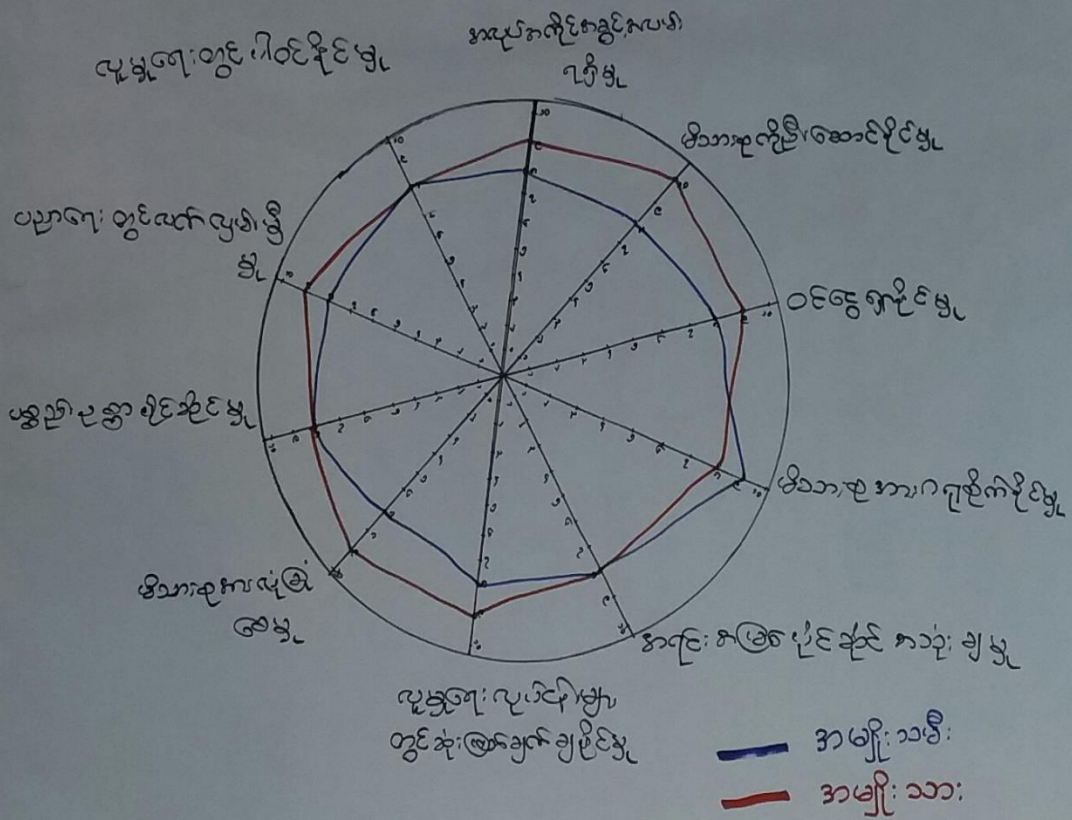 အလုပ်အကိုင်အခွင့်အလမ်း
ရရှိမှု
မိသားစုကိုဦးဆောင်နိုင်မှု
ဝင်ငွေရှာနိုင်မှု
မိသားစုအားဂရုစိုက်နိုင်မှု
အရင်းအမြစ်ပိုင်ဆိုင် အသုံးချမှု
လူမှုရေးလုပ်ငန်းများ
တွင်ဆုံးဖြတ်ချက်ချနိုင်မှု
မိသားစုအားလုံခြုံ
စေမှု
ပစ္စည်းဥစ္စာပိုင်ဆိုင်မှု
ပညာရေးတွင်လက်လှမ်းမှီ
မှု
လူမှုရေးတွင်ပါဝင်နိုင်မှု
အမျိုးသမီး
အမျိုးသား